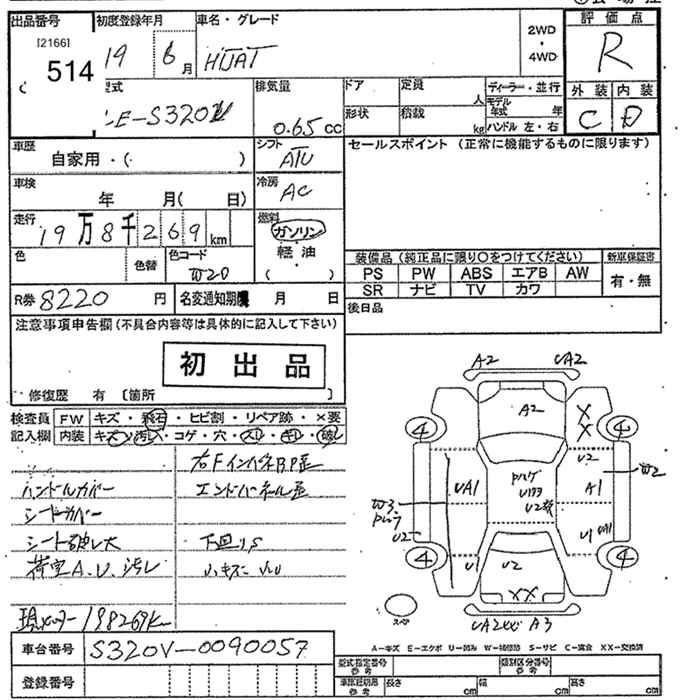 出品番号 初度登録年月 車名・グレード 2WD・4WD 評価点
[2166]
514
19 6月 HIJAT R
型式 排気量 ドア 定員 人 ディーラー・並行 外装 内装
LE-S320V 0.65cc 形状 積載 kg モデル年式 年 C D
ハンドル 左・右
車歴 自家用・( ) シフト ATU セールスポイント (正常に機能するものに限ります)
車検 年 月( 日) 冷房 AC
走行 19万8千269km 燃料 ガソリン
軽油
( )
色 色替 色コード W20
装備品 (純正品に限り○をつけてください) 新車保証書
PS PW ABS エアB AW 有・無
SR ナビ TV カワ
R券 8220円 名変通知期限 月 日 後日品
注意事項申告欄(不具合内容等は具体的に記入して下さい)
初出品
修復歴 有 [箇所 ]
検査員記入欄 FW キズ・飛石・ヒビ割・リペア跡・×要
内装 キズ・汚れ・コゲ・穴・スレ・キレ・破レ
ハンドルカバー エンドパネル歪
シートカバー
シート破レ大 下回りS
荷室A.U.汚レ 小キズ 小U
現メーター198269K
A2 UA2
A2 × ×
4 4
U2
W2
UA1 A1
W3
U2
U1
4 4
U1 U2
××
スペア
A3
車台番号 S320V-0090057
登録番号
A-キズ E-エクボ U-凹み W-補修跡 S-サビ C-腐食 XX-交換済
型式指定番号 参考 類別区分番号 参考
車庫証明用 参考 長さ cm 幅 cm 高さ cm